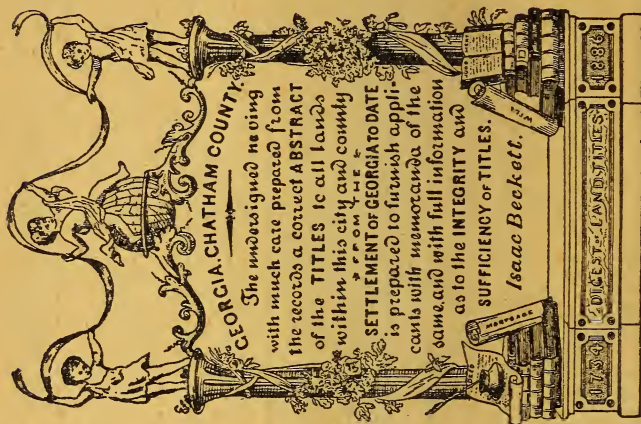 GEORGIA. CHATHAM COUNTY.
The undersigned having
with much care prepared from
the records a correct ABSTRACT
of the TITLES to all lands
within this city and county
FROM THE
SETTLEMENT OF GEORGIA TO DATE
is prepared to furnish appli-
cants with memoranda of the
same, and with full information
as to the INTEGRITY and
SUFFICIENCY OF TITLES.
Isaac Beckett.
MORTGAGE
WILL
1734
DIGEST OF LAND TITLES
1886